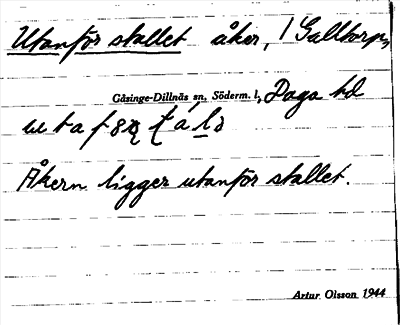 Utanför stallet åker, / Galltorp,
Gåsinge-Dillnäs sn, Söderm. l, Daga hd
Åkern ligger utanför stallet.
Artur Olsson 1944